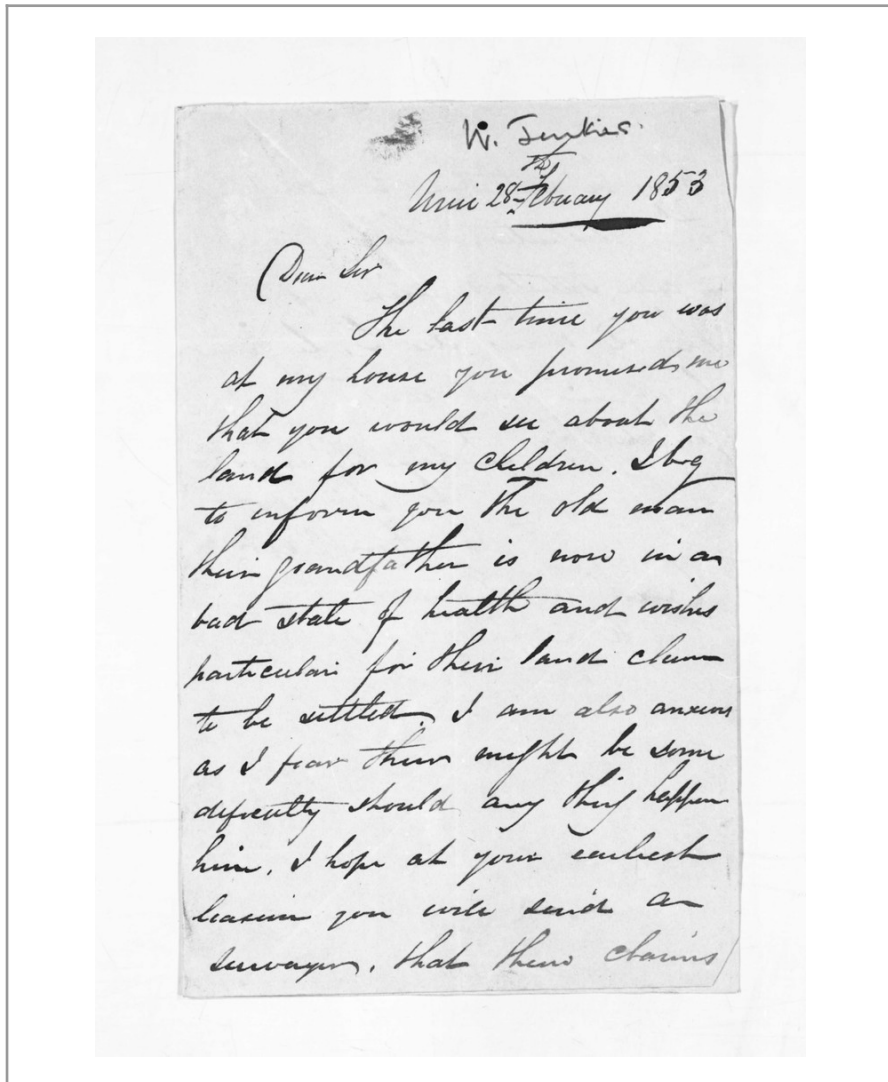 W. Jenkins.
28th February 1853
Dear Sir
The last time you was
at my house you promised me
that you would see about the
land for my children. I beg
to inform you The old man
their grandfather is now in a
bad state of health and wishes
particular for their land claim
to be settled. I am also anxious
as I fear their might be some
deficulty should any thing happen
him. I hope at your earliest
leasure you will send a
survayer. that there claims